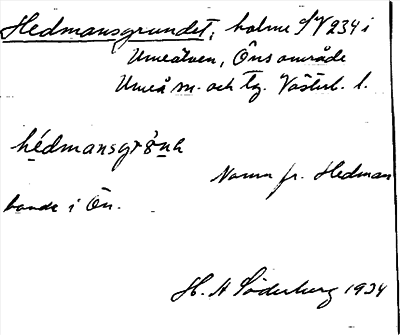 Hedmansgrundet, holme S/V 234 i
Umeälven, Öns område
Umeå sn. och tg. Västerb. l.
hédmansgrʉ̀nḁ
Namn fr. Hedman
bonde i Ön.
H. A Söderberg 1934